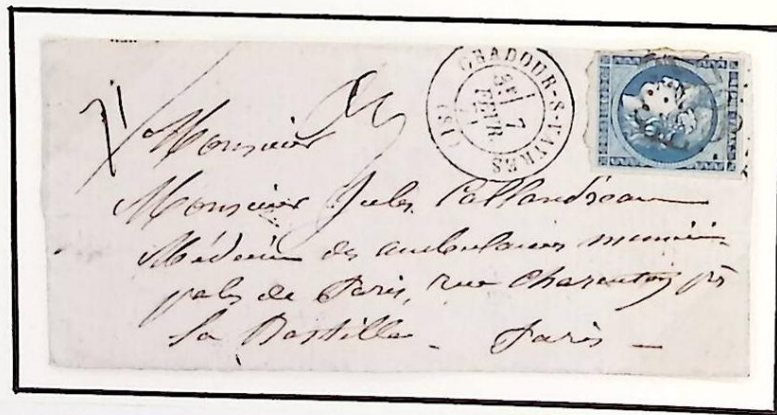 ORADOUR-S-VAYRES
7
FEVR.
Monsieur
Monsieur Jules Callandreau
Médecin des ambulances munici-
pales de Paris, rue Charenton, prs
la Bastille - Paris -